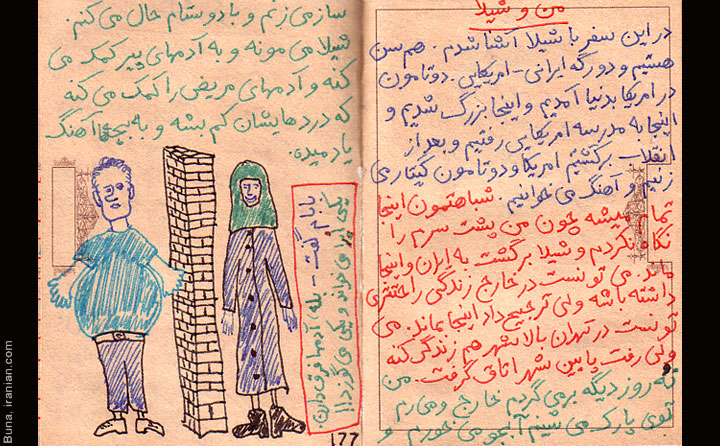 من و شیلا
در این سفر با شیلا آشنا شدم. هم سن
هستیم و دورگه ایرانی - امریکایی. دوتامون
در امریکا بدنیا آمدیم و اینجا بزرگ شدیم و
اینجا به مدرسه امریکایی رفتیم و بعد از
انقلاب برگشتیم امریکا و دوتامون گیتار می
زنیم و آهنگ می خوانیم. شباهتمون اینجا
تمام میشه چون من پشت سرم را
نگاه نکردم و شیلا برگشت به ایران و اینجا
ماند. می تونست در خارج زندگی راحتتری
داشته باشه ولی ترجیح داد اینجا بماند. می
تونست در تهران بالا شهر هم زندگی کنه
ولی رفت پایین شهر اتاق گرفت. من
نه روز دیگه برمی گردم خارج و می رم
توی پارک می شینم آبجو می خورم و
ساز می زنم و با دوستام حال می کنم.
شیلا می مونه و به آدمهای پیر کمک می
کنه و آدمهای مریض را کمک می کنه
که دردهایشان کم بشه و به بچه ها آهنگ
یاد میده.
بابام گفت - بله آدمها فرق دارن.
یکی اپرا می خواند و یکی می گوزد!!
177
Buna, iranian.com